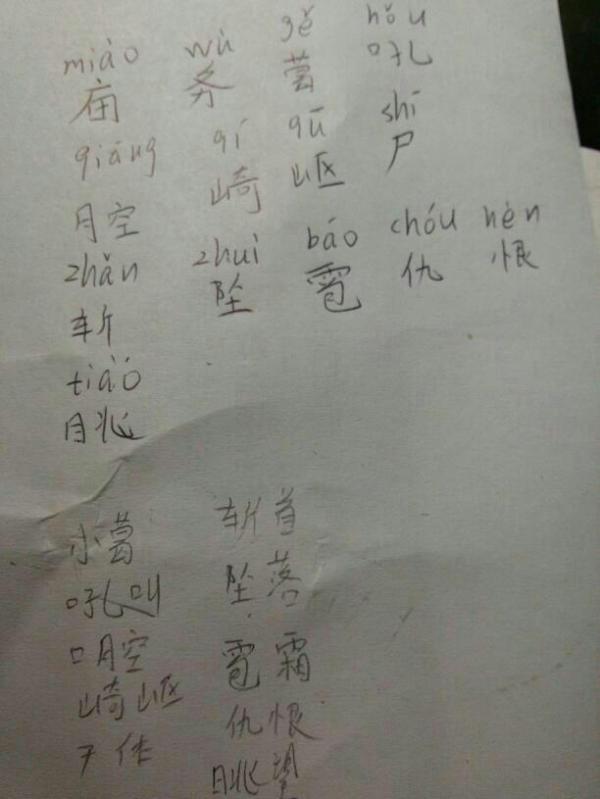 miào wù gě hǒu
庙 务 葛 吼
qiāng qí qū shī
腔 崎 岖 尸
zhǎn zhuì báo chóu hèn
斩 坠 雹 仇 恨
tiào
眺
小葛 斩首
吼叫 坠落
腔 雹霜
崎岖 仇恨
尸体 眺望